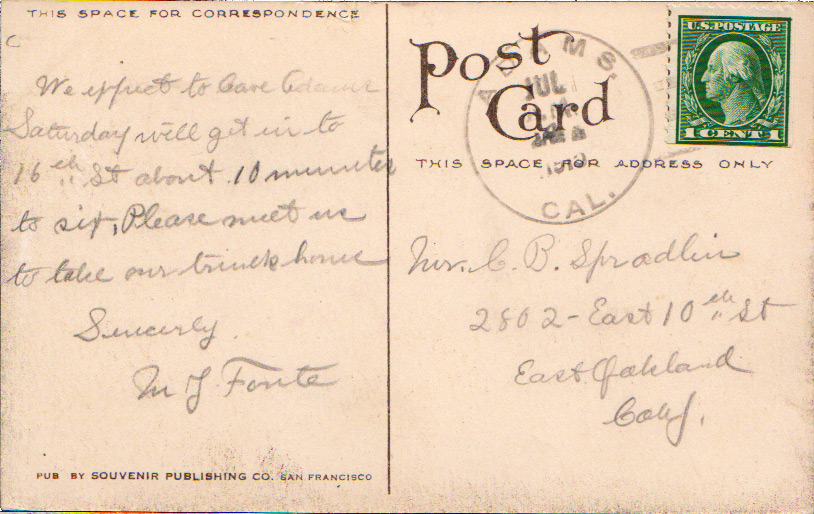 THIS SPACE FOR CORRESPONDENCE
We expect to leave Adams
Saturday will get in to
16th St about 10 minutes
to six, Please meet us
to take our trunk home
Sincerly
M J Fonte
PUB BY SOUVENIR PUBLISHING CO. SAN FRANCISCO
Post
Card
THIS SPACE FOR ADDRESS ONLY
ADAMS.
JUL
CAL.
U.S. POSTAGE
1 CENT 1
Mr. C. B. Spradlin
2802 - East 10th St
East Oakland
Calif.